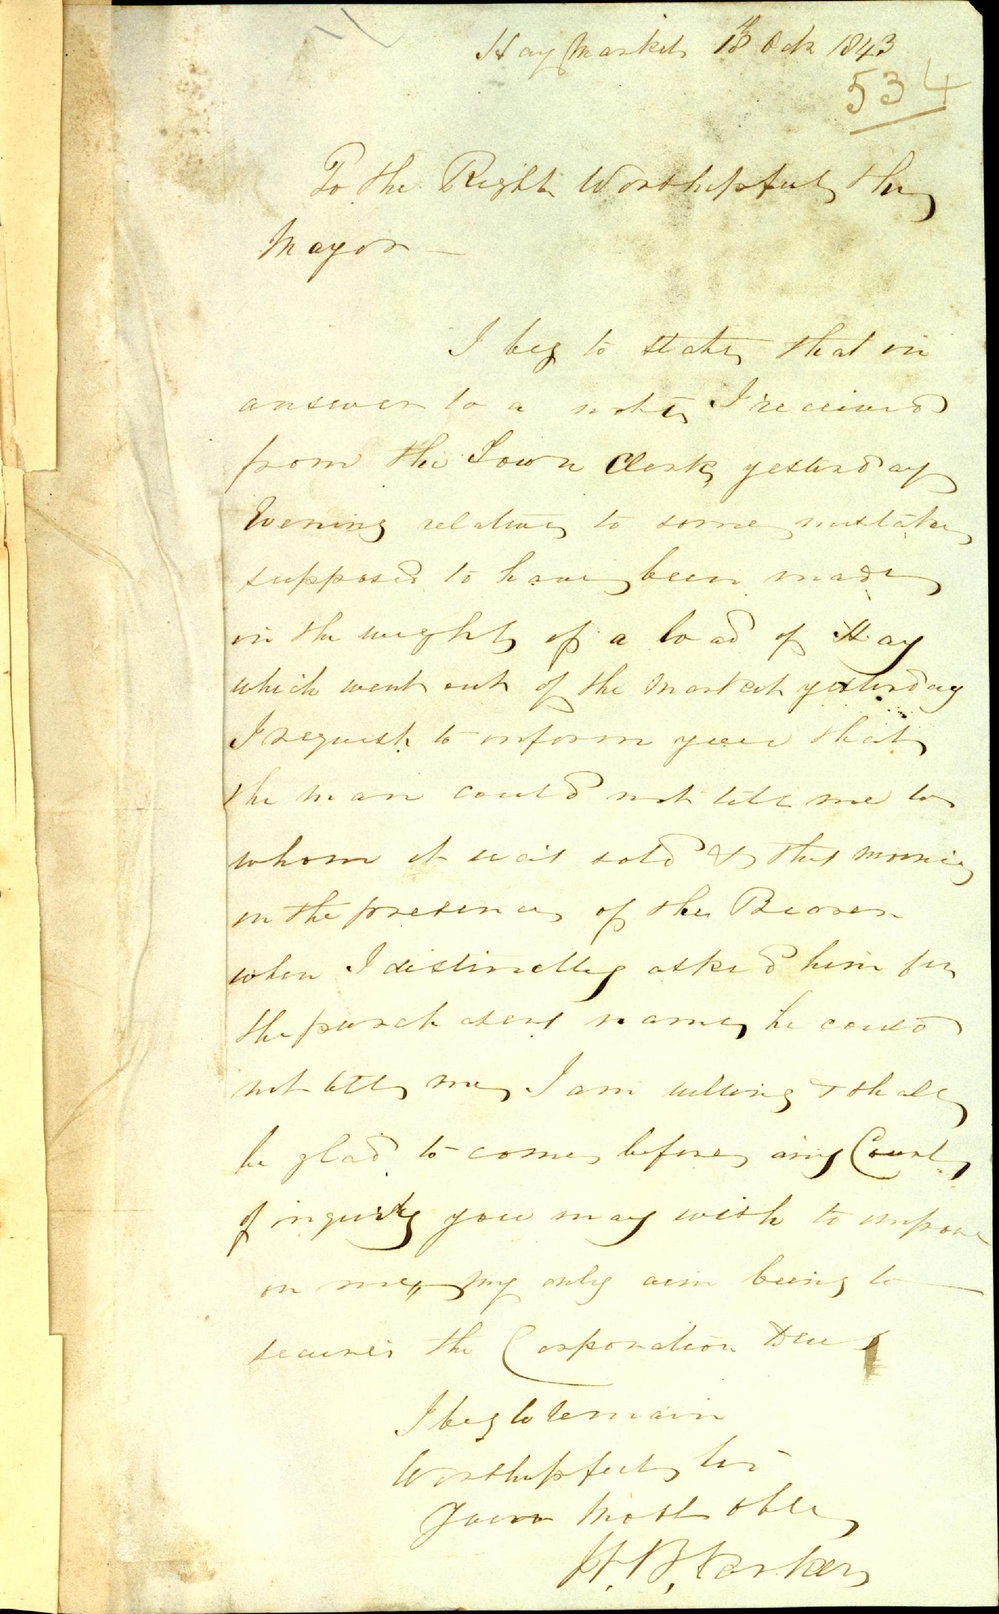 Hay Market 18th Octr 1843
534
To the Right Worshipful the
Mayor —
I beg to state that in
answer to a note I received
from the Town Clerk yesterday
Evening relative to some mistake
supposed to have been made
in the weight of a load of Hay
which went out of the Market yesterday
I request to inform you that
the man could not tell me to
whom it was sold & this morning
in the presence of the
when I distinctly asked him for
the purchasers name he could
not tell me, I am willing & shall
be glad to come before any Court
of inquiry you may wish to impose
on me, my only aim being to
secure the Corporation Dues
I beg to remain
Worshipful Sir
Your Most oble
H. B. Parker